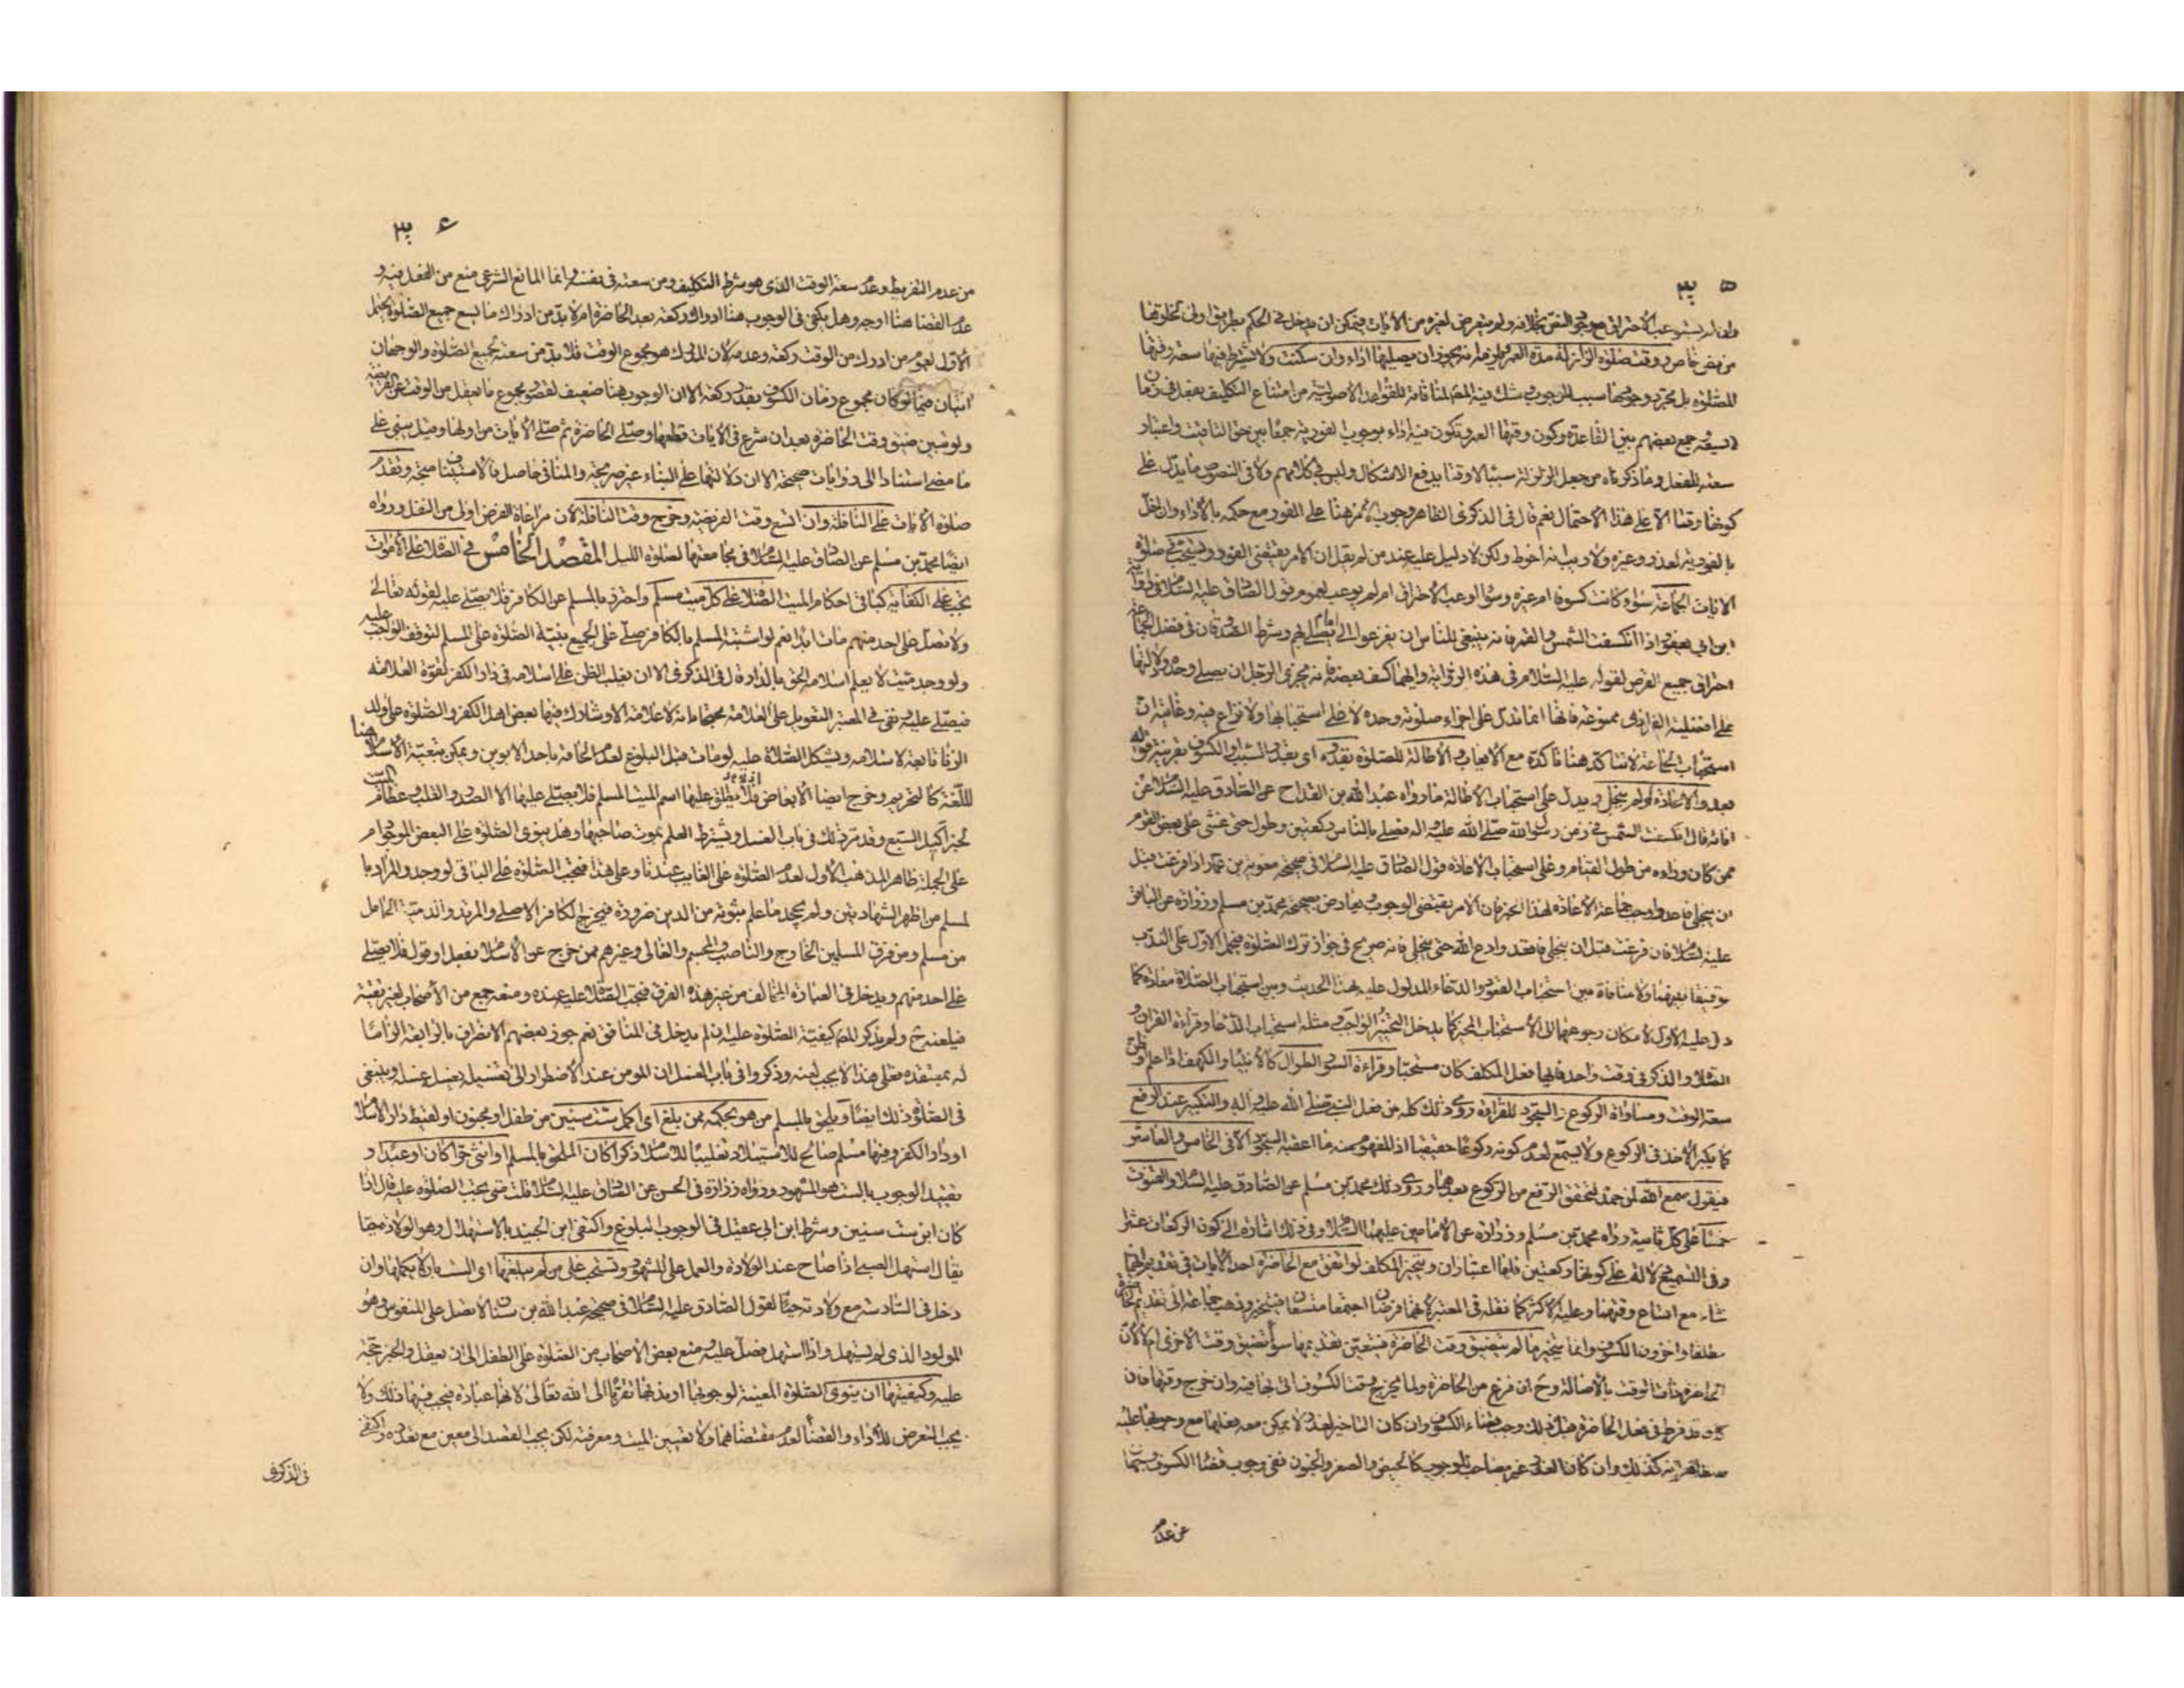 ٣٠٥
وان لم يستوعب الاحتراق مع وجود النص بخلافه ولم يتعرض لغيره من الآيات فيمكن ان يدخل في الحكم بطريق اولى لخلوها
من نص خاص ووقت صلوة الزلزلة مدة العمر يجوز ان يصليها اداء وان سكنت ولا يشترط فيها سعة وقتها
للصلوة بل مجرد وجودها سبب للوجوب شك فيه المص لمنافاته للقواعد الاصولية من امتناع التكليف بفعل في زمان
لا يسعه وجمع بعضهم بين القاعدة وكون وقتها العمر وتكون فيه اداء بوجوب الفورية جمعا بين حق التاقيت واعتبار
سعته للفعل وما ذكرناه من جعل الزلزلة سببا لا وقتا يدفع الاشكال وليس في كلامهم ولا في النصوص ما يدل على
كونها وقتا الا على هذا الاحتمال نعم قال في الذكرى الظاهر وجوب الامر هنا على الفور مع حكمه بالاداء وان اخل
بالفورية لعذر وغيره ولا ريب انه احوط ولكن لا دليل عليه عند من لم يقل ان الامر يقتضي الفور ويستحب في صلوة
الآيات الجماعة سواء كانت كسوفا ام غيره وسواء اوعب الاحتراق ام لم يوعب لعموم قول الصادق عليه السلام في رواية
ابن ابي يعفور اذا انكسفت الشمس والقمر فانه ينبغي للناس ان يفزعوا الى امام يصلي بهم وشرط الصدوقان في فضل الجماعة
احتراق جميع القرص لقوله عليه السلام في هذه الرواية وايهما كسف بعضه فانه يجزي الرجل ان يصلي وحده ودلالتها
على افضلية الفرادى ممنوعة فانها انما تدل على اجزاء صلوته وحده لا على استحبابها ولا نزاع فيه وغايته ان
استحباب الجماعة لا يتاكد هنا تاكده مع الايعاب والاطالة للصلوة بقدره اي بقدر السبب او الكسوف بقرينة قوله
بعد والاعادة لو لم ينجل ويدل على استحباب الاطالة ما رواه عبد الله بن القداح عن الصادق عليه السلام عن
آبائه قال انكسفت الشمس في زمن رسول الله صلى الله عليه واله فصلى بالناس ركعتين وطول حتى غشي على بعض القوم
ممن كان وراءه من طول القيام وعلى استحباب الاعادة قول الصادق عليه السلام في صحيحة معوية بن عمار اذا فرغت قبل
ان ينجلي فاعد واوجب جماعة الاعادة لهذا الخبر فان الامر يقتضي الوجوب ويعارض بصحيحة محمد بن مسلم وزرارة عن الباقر
عليه السلام فان فرغت قبل ان ينجلي فاقعد وادع الله حتى ينجلي فانه صريح في جواز ترك الصلوة فيحمل الاول على الندب
توفيقا بينهما ولا منافاة بين استحباب القنوت والدعاء المدلول عليه بهذا الحديث وبين استحباب الصلاة معادة كما
دل عليه الاول لامكان رجوعهما الى الاستحباب المخير كما يدخل التخيير الواجب ومثله استحباب الدعاء وقراءة القران و
الصلاة والذكر في وقت واحد فايها فعل المكلف كان مستحبا وقراءة السور الطوال كالانبياء والكهف اذا علم او ظن
سعة الوقت ومساواة الركوع والسجود للقراءة روي ذلك كله من فعل النبي صلى الله عليه واله والتكبير عند الرفع
كما يكبر للاخذ في الركوع ولا يسمع لعدم كونه ركوعا حقيقيا اذ المفهوم منه ما اعقبه السجود الا في الخامس والعاشر
فيقول سمع الله لمن حمده لتحقق الرفع من الركوع بعدهما وروى ذلك محمد بن مسلم عن الصادق عليه السلام والقنوت
خمسا على كل ثانية رواه محمد بن مسلم وزرارة عن الامامين عليهما السلام وفي ذلك اشارة الى كون الركعات عشرا
وفي التسميع دلالة على كونها ركعتين فلها اعتباران ويتخير المكلف لو اتفق مع الحاضرة احد الآيات في تقديم ايهما
شاء مع اتساع وقتهما وعليه الاكثر كما نقله في المعتبر لانهما فرضان اجتمعا متسعان فيتخير وذهب جماعة الى تقديم الحاضرة
مطلقا واخرون الكسوف وانما يتخير ما لم يتضيق وقت الحاضرة فيتعين تقديمها سواء تضيق وقت الاخرى ام لا لان
الحاضرة ذات الوقت بالاصالة وح ان فرغ من الحاضرة ولما يخرج وقت الكسوف اتى بها فيه وان خرج وقتها فان
كان قد فرط في فعل الحاضرة قبل ذلك وجب قضاء الكسوف وان كان التاخير لعذر لا يمكن معه فعلها مع وجوبها عليه
فظاهر انه كذلك وان كان العذر غير مصاحب للوجوب كالحيض والصغر والجنون ففي وجوب قضاء الكسوف
من عدم
٣٠٦
من عدم التفريط وعدم سعة الوقت الذي هو شرط التكليف ومن سعته في نفسه وانما المانع الشرعي منع من الفعل فيه و
عدم القضا هنا اوجه وهل يكفي في الوجوب هنا ادراك ركعة بعد الحاضرة ام لا بد من ادراك ما يسع جميع الصلوة يحتمل
الاول لعموم من ادرك من الوقت ركعة وعدمه لان المدرك هو مجموع الوقت فلا بد من سعته لجميع الصلوة والوجهان
آتيان فيما لو كان مجموع زمان الكسوف بقدر ركعة الا ان الوجوب هنا ضعيف لقصور مجموع ما يفعل من الوقت عن الفريضة
ولو تبين ضيق وقت الحاضرة بعد ان شرع في الآيات قطعها وصلى الحاضرة ثم صلى الآيات من اولها وقيل يبني على
ما مضى استنادا الى روايات صحيحة الا ان دلالتها على البناء غير صريحة والمنافي حاصل فالاستيناف متجه وتقدم
صلوة الآيات على النافلة وان اتسع وقت الفريضة وخرج وقت النافلة لان مراعاة الفرض اولى من النفل ورواه
ايضا محمد بن مسلم عن الصادق عليه السلام في مجامعتها لصلوة الليل المقصد الخامس في الصلاة على الاموات
تجب على الكفاية كباقي احكام الميت الصلاة على كل ميت مسلم واحترز بالمسلم عن الكافر فلا يصلى عليه لقوله تعالى
ولا تصل على احد منهم مات ابدا نعم لو اشتبه المسلم بالكافر صلى على الجميع بنية الصلوة على المسلم لتوقف الواجب عليه
ولو وجد ميت لا يعلم اسلامه الحق بالدار قال في الذكرى الا ان يغلب الظن على اسلامه في دار الكفر لقوة العلامة
فيصلى عليه ونفى في المعتبر التعويل على العلامة محتجا بانه لا علامة الا وشارك فيها بعض اهل الكفر والصلوة على ولد
الزنا تابعة لاسلامه ويشكل الصلاة عليه لو مات قبل البلوغ لعدم الحاقه باحد الابوين ويمكن تبعية الاسلام هنا
للغة كالتحريم وخرج ايضا الابعاض فلا يطلق عليها اسم الميت المسلم فلا يصلى عليها الا الصدر والقلب وعظام الميت
لخبر اكيل السبع وقد مر ذلك في باب الغسل ويشترط العلم بموت صاحبها وهل ينوى الصلوة على البعض الموجود ام
على الجملة ظاهر المذهب الاول لعدم الصلوة على الغايب عندنا وعلى هذا فتجب الصلوة على الباقي لو وجد والمراد با
لمسلم من اظهر الشهادتين ولم يجحد ما علم ثبوته من الدين ضرورة فيخرج الكافر الاصلي والمرتد والذمية الحامل
من مسلم ومن فرق المسلمين الخارج والناصب والمجسم والغالي وغيرهم ممن خرج عن الاسلام بفعل او قول فلا يصلى
على احد منهم ويدخل في العبارة المخالف من غير هذه الفرق فتجب الصلاة عليه عنده ومنعه جمع من الاصحاب لغير تقية
فيلعنه ح ولم يذكر المص كيفية الصلوة عليه انه لم يدخل في المنافق نعم جوز بعضهم الانصراف بالرابعة الزاما
له بمعتقده فعلى هذا لا يجب لعنه وذكروا في باب الغسل ان المومن عند الاضطرار الى تغسيله يغسل غسله وينبغي
في الصلوة ذلك ايضا ويلحق بالمسلم من هو بحكمه ممن بلغ اي اكمل ست سنين من طفل او مجنون او لقيط دار الاسلام
او دار الكفر وفيها مسلم صالح للاستيلاد تغليبا للاسلام ذكرا كان الملحق بالمسلم او انثى حرا كان او عبدا و
تقييد الوجوب بالست هو المشهور ورواه زرارة في الحسن عن الصادق عليه السلام قلت متى تجب الصلوة عليه قال اذا
كان ابن ست سنين وشرط ابن ابي عقيل في الوجوب البلوغ واكتفى ابن الجنيد بالاستهلال وهو الولادة حيا
يقال استهل الصبي اذا صاح عند الولادة والعمل على المشهور وتستحب على من لم يبلغها اي الست بان لا يكملها وان
دخل في السادسة مع ولادته حيا لقول الصادق عليه السلام في صحيحة عبد الله بن سنان لا يصلى على المنفوس وهو
المولود الذي لم يستهل واذا استهل فصل عليه ومنع بعض الاصحاب من الصلوة على الطفل الى ان يعقل والخبر حجة
عليه وكيفيتها ان ينوي الصلوة المعينة لوجوبها او ندبها تقربا الى الله تعالى لانها عبادة فيجب فيها ذلك ولا
يجب التعرض للاداء والقضا لعدم مقتضاهما ولا تعيين الميت ومعرفته لكن يجب القصد الى معين مع تعدده واكتفى
في الذكرى